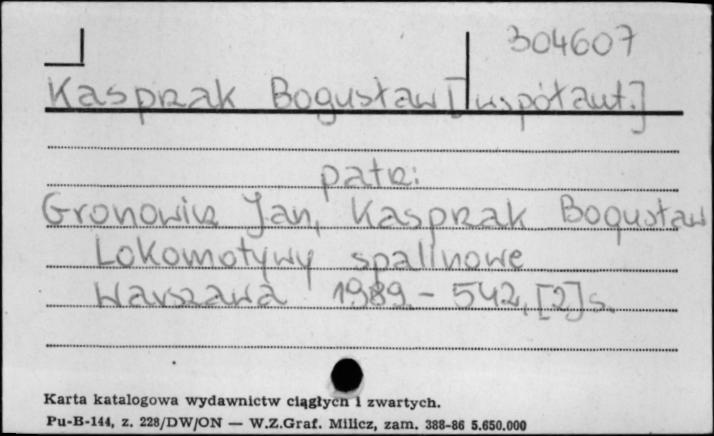 304607
Kasprzak Bogusław [współaut.]
patrz:
Gronowicz Jan, Kasprzak Bogusław
Lokomotywy spalinowe
Warszawa 1989.- 542, [2] s.
Karta katalogowa wydawnictw ciągłych i zwartych.
Pu-B-144, z. 228/DW/ON — W.Z.Graf. Milicz, zam. 388-86 5.650.000